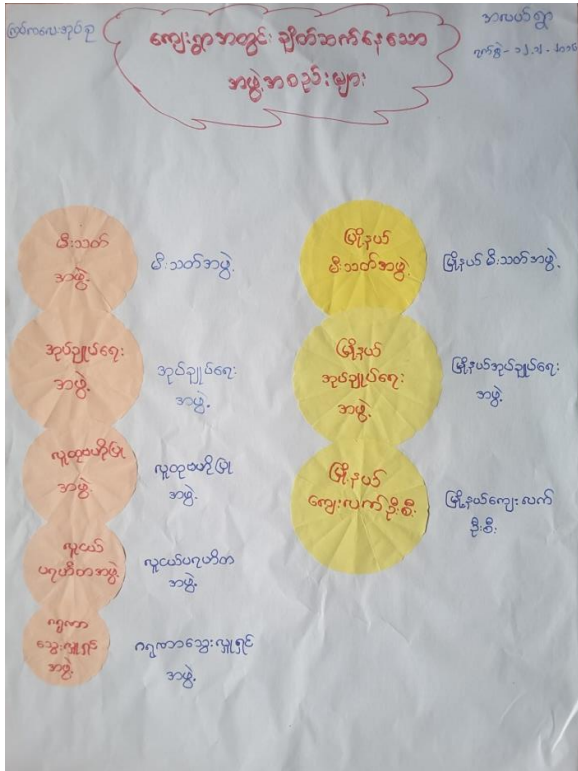 ကြပ်ကလေးအုပ်စု
အလယ်ရွာ
ကျေးရွာအတွင်း ချိတ်ဆက်နေသော
အဖွဲ့အစည်းများ
မီးသတ်
အဖွဲ့
မီးသတ်အဖွဲ့
အုပ်ချုပ်ရေး
အဖွဲ့
အုပ်ချုပ်ရေး
အဖွဲ့
လူထုဗဟိုပြု
အဖွဲ့
လူထုဗဟိုပြု
အဖွဲ့
လူငယ်
ပရဟိတအဖွဲ့
လူငယ်ပရဟိတ
အဖွဲ့
ဂရုဏာ
သွေးလှူရှင်
အဖွဲ့
ဂရုဏာသွေးလှူရှင်
အဖွဲ့
မြို့နယ်
မီးသတ်အဖွဲ့
မြို့နယ် မီးသတ်အဖွဲ့
မြို့နယ်
အုပ်ချုပ်ရေး
အဖွဲ့
မြို့နယ်အုပ်ချုပ်ရေး
အဖွဲ့
မြို့နယ်
ကျေးလက်ဦးစီး
မြို့နယ်ကျေးလက်
ဦးစီး